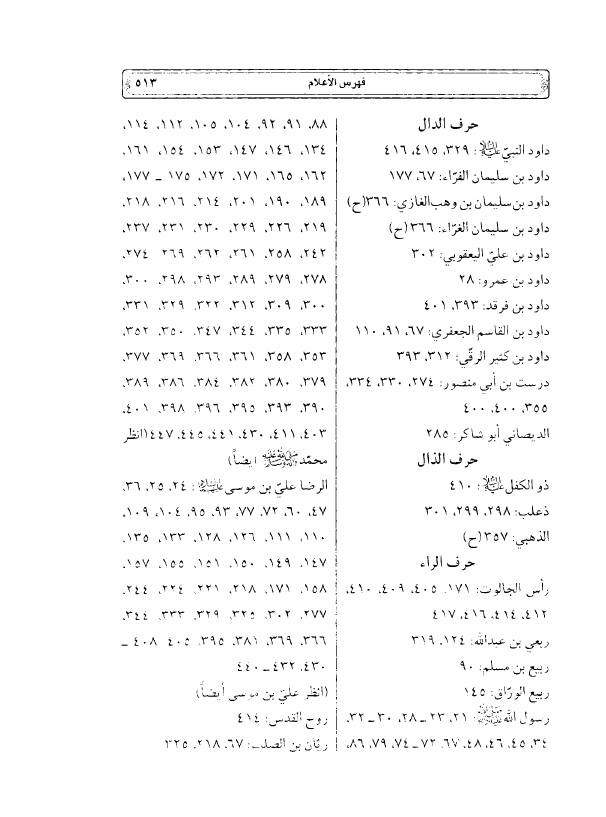 فهرس الأعلام ٥١٣
حرف الدال
داود النبيّ عليه السلام: ٣٢٩، ٤١٥، ٤١٦
داود بن سليمان الفرّاء: ٦٧، ١٧٧
داود بن سليمان بن وهب الغازي: ٣٦٦(ح)
داود بن سليمان الغرّاء: ٣٦٦(ح)
داود بن عليّ اليعقوبي: ٣٠٢
داود بن عمرو: ٢٨
داود بن فرقد: ٣٩٣، ٤٠١
داود بن القاسم الجعفري: ٦٧، ٩١، ١١٠
داود بن كثير الرقّي: ٣١٢، ٣٩٣
درست بن أبي منصور: ٢٧٤، ٣٣٠، ٣٣٤،
٣٥٥، ٤٠٠، ٤٠٠
الديصاني أبو شاكر: ٢٨٥
حرف الذال
ذو الكفل عليه السلام: ٤١٠
ذعلب: ٢٩٨، ٢٩٩، ٣٠١
الذهبي: ٣٥٧(ح)
حرف الراء
رأس الجالوت: ١٧١، ٤٠٥، ٤٠٩، ٤١٠،
٤١٢، ٤١٤، ٤١٦، ٤١٧
ربعي بن عبدالله: ١٢٤، ٣١٩
ربيع بن مسلم: ٩٠
ربيع الورّاق: ١٤٥
رسول الله ﷺ: ٢١، ٢٣ ـ ٢٨، ٣٠ ـ ٣٢،
٣٤، ٤٥، ٤٦، ٤٨، ٦٧، ٧٢ ـ ٧٤، ٧٩، ٨٦،
٨٨، ٩١، ٩٢، ١٠٤، ١٠٥، ١١٢، ١١٤،
١٣٤، ١٤٦، ١٤٧، ١٥٣، ١٥٤، ١٦١،
١٦٢، ١٦٥، ١٧١، ١٧٢، ١٧٥ ـ ١٧٧،
١٨٩، ١٩٠، ٢٠١، ٢١٤، ٢١٦، ٢١٨،
٢١٩، ٢٢٦، ٢٢٩، ٢٣٠، ٢٣١، ٢٣٧،
٢٤٢، ٢٥٨، ٢٦١، ٢٦٢، ٢٦٩ ٢٧٤،
٢٧٨، ٢٧٩، ٢٨٩، ٢٩٣، ٢٩٨، ٣٠٠،
٣٠٠، ٣٠٩، ٣١٢، ٣٢٢، ٣٢٩، ٣٣١،
٣٣٣، ٣٣٥، ٣٤٤، ٣٤٧، ٣٥٠، ٣٥٢،
٣٥٣، ٣٥٨، ٣٦١، ٣٦٦، ٣٦٩، ٣٧٧،
٣٧٩، ٣٨٠، ٣٨٢، ٣٨٤، ٣٨٦، ٣٨٩،
٣٩٠، ٣٩٣، ٣٩٥، ٣٩٦، ٣٩٨، ٤٠١،
٤٠٣، ٤١١، ٤٣٠، ٤٤١، ٤٤٥، ٤٤٧(انظر
محمّد ﷺ ايضاً)
الرضا عليّ بن موسى عليهما السلام: ٢٤، ٢٥، ٣٦،
٤٧، ٦٠، ٧٢، ٧٧، ٩٣، ٩٥، ١٠٤، ١٠٩،
١١٠، ١١١، ١٢٦، ١٢٨، ١٣٣، ١٣٥،
١٤٧، ١٤٩، ١٥٠، ١٥١، ١٥٥، ١٥٧،
١٥٨، ١٧١، ٢١٨، ٢٢١، ٢٢٤، ٢٤٤،
٢٧٧، ٣٠٢، ٣٢٥، ٣٢٩، ٣٣٣، ٣٤٤،
٣٦٦، ٣٦٩، ٣٨١، ٣٩٥، ٤٠٥ ٤٠٨ ـ
٤٣٠، ٤٣٢ ـ ٤٤٠
(انظر عليّ بن موسى أيضاً)
روح القدس: ٤١٤
ريّان بن الصلت: ٦٧، ٢١٨، ٣٢٥